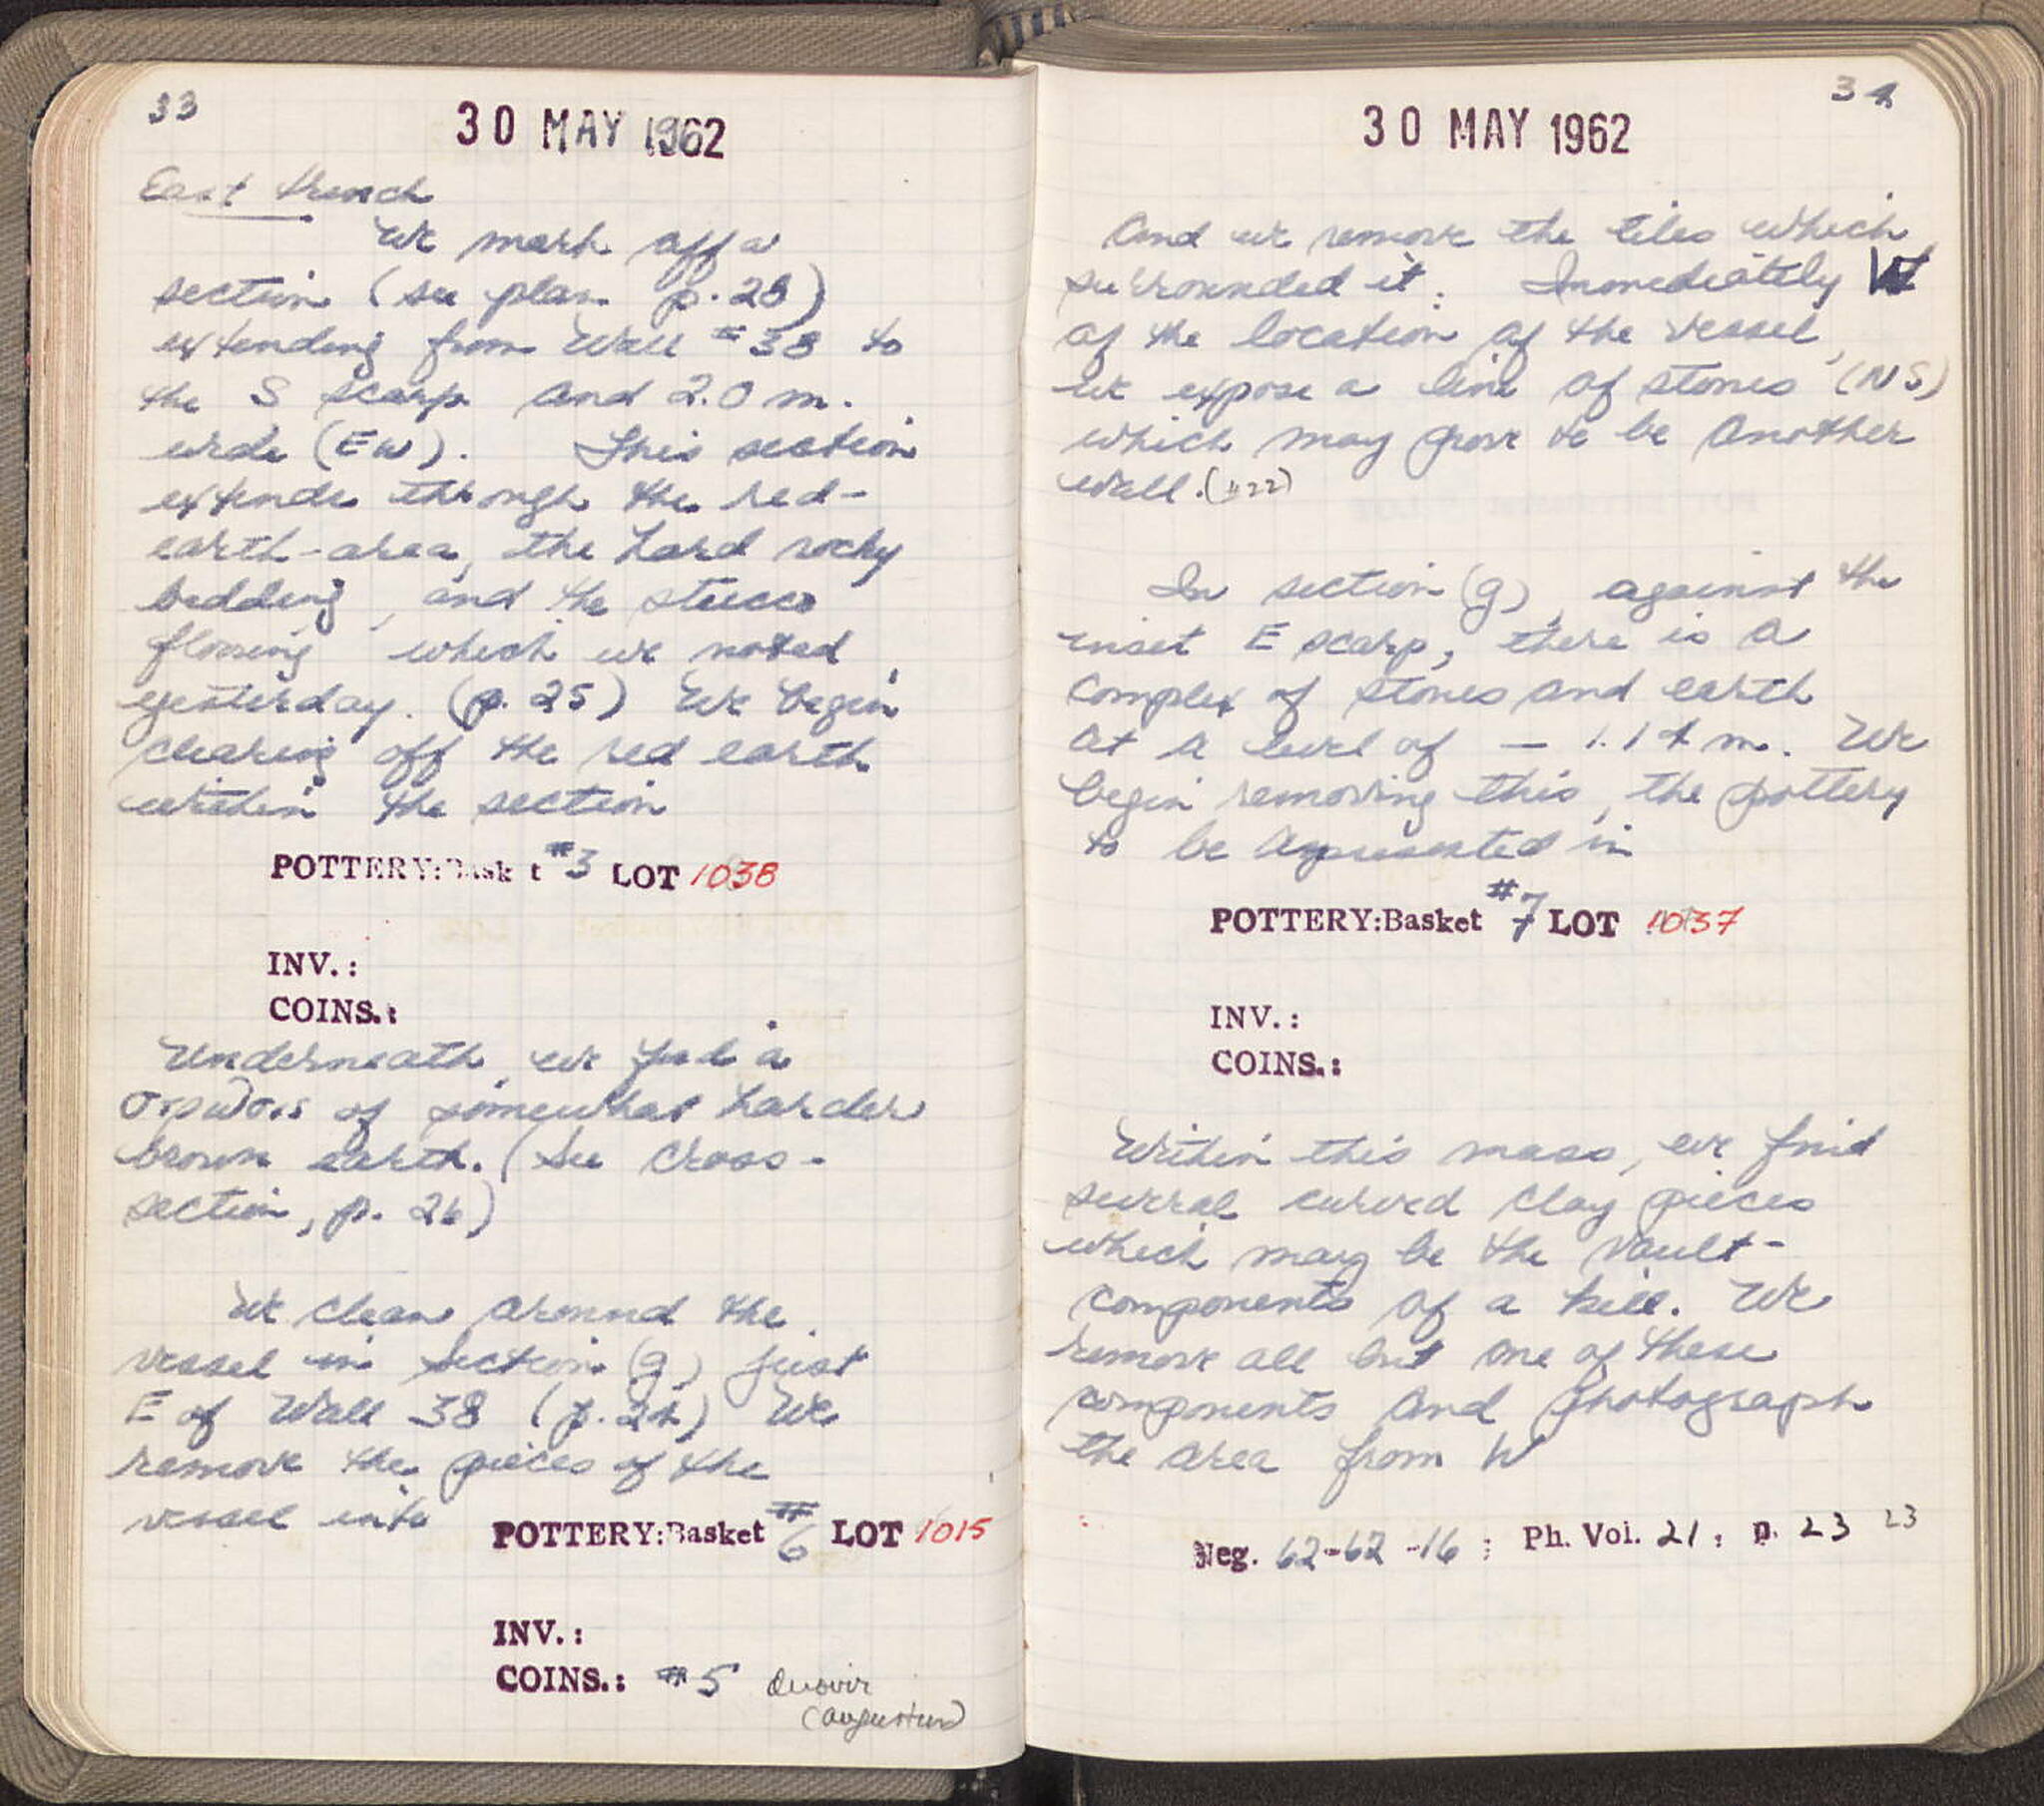 33
30 MAY 1962
East trench
We mark off a
section (see plan p. 28)
extending from Wall #38 to
the S scarp and 2.0 m.
wide (EW). This section
extends through the red-
earth-area, the hard rocky
bedding, and the stucco
flooring which we noted
yesterday. (p. 25) We begin
clearing off the red earth
within the section
POTTERY: Basket #3 LOT 1038
INV.:
COINS.:
Underneath, we find a
στρῶσις of somewhat harder
brown earth. (See cross-
section, p. 26)
We clean around the
vessel in section (g) just
E of Wall 38 (p. 24) We
remove the pieces of the
vessel into
POTTERY: Basket #6 LOT 1015
INV.:
COINS.: #5 duovir
(Augustus)
34
30 MAY 1962
and we remove the tiles which
surrounded it. Immediately W
of the location of the vessel,
we expose a line of stones (NS)
which may prove to be another
wall. (#22)
In section (g), against the
inset E scarp, there is a
complex of stones and earth
at a level of – 1.14 m. We
begin removing this, the pottery
to be represented in
POTTERY:Basket #7 LOT 1037
INV.:
COINS.:
Within this mass, we find
several curved clay pieces
which may be the vault-
components of a kiln. We
remove all but one of these
components and photograph
the area from W
Neg. 62-62-16; Ph. Vol. 21; p. 23 23